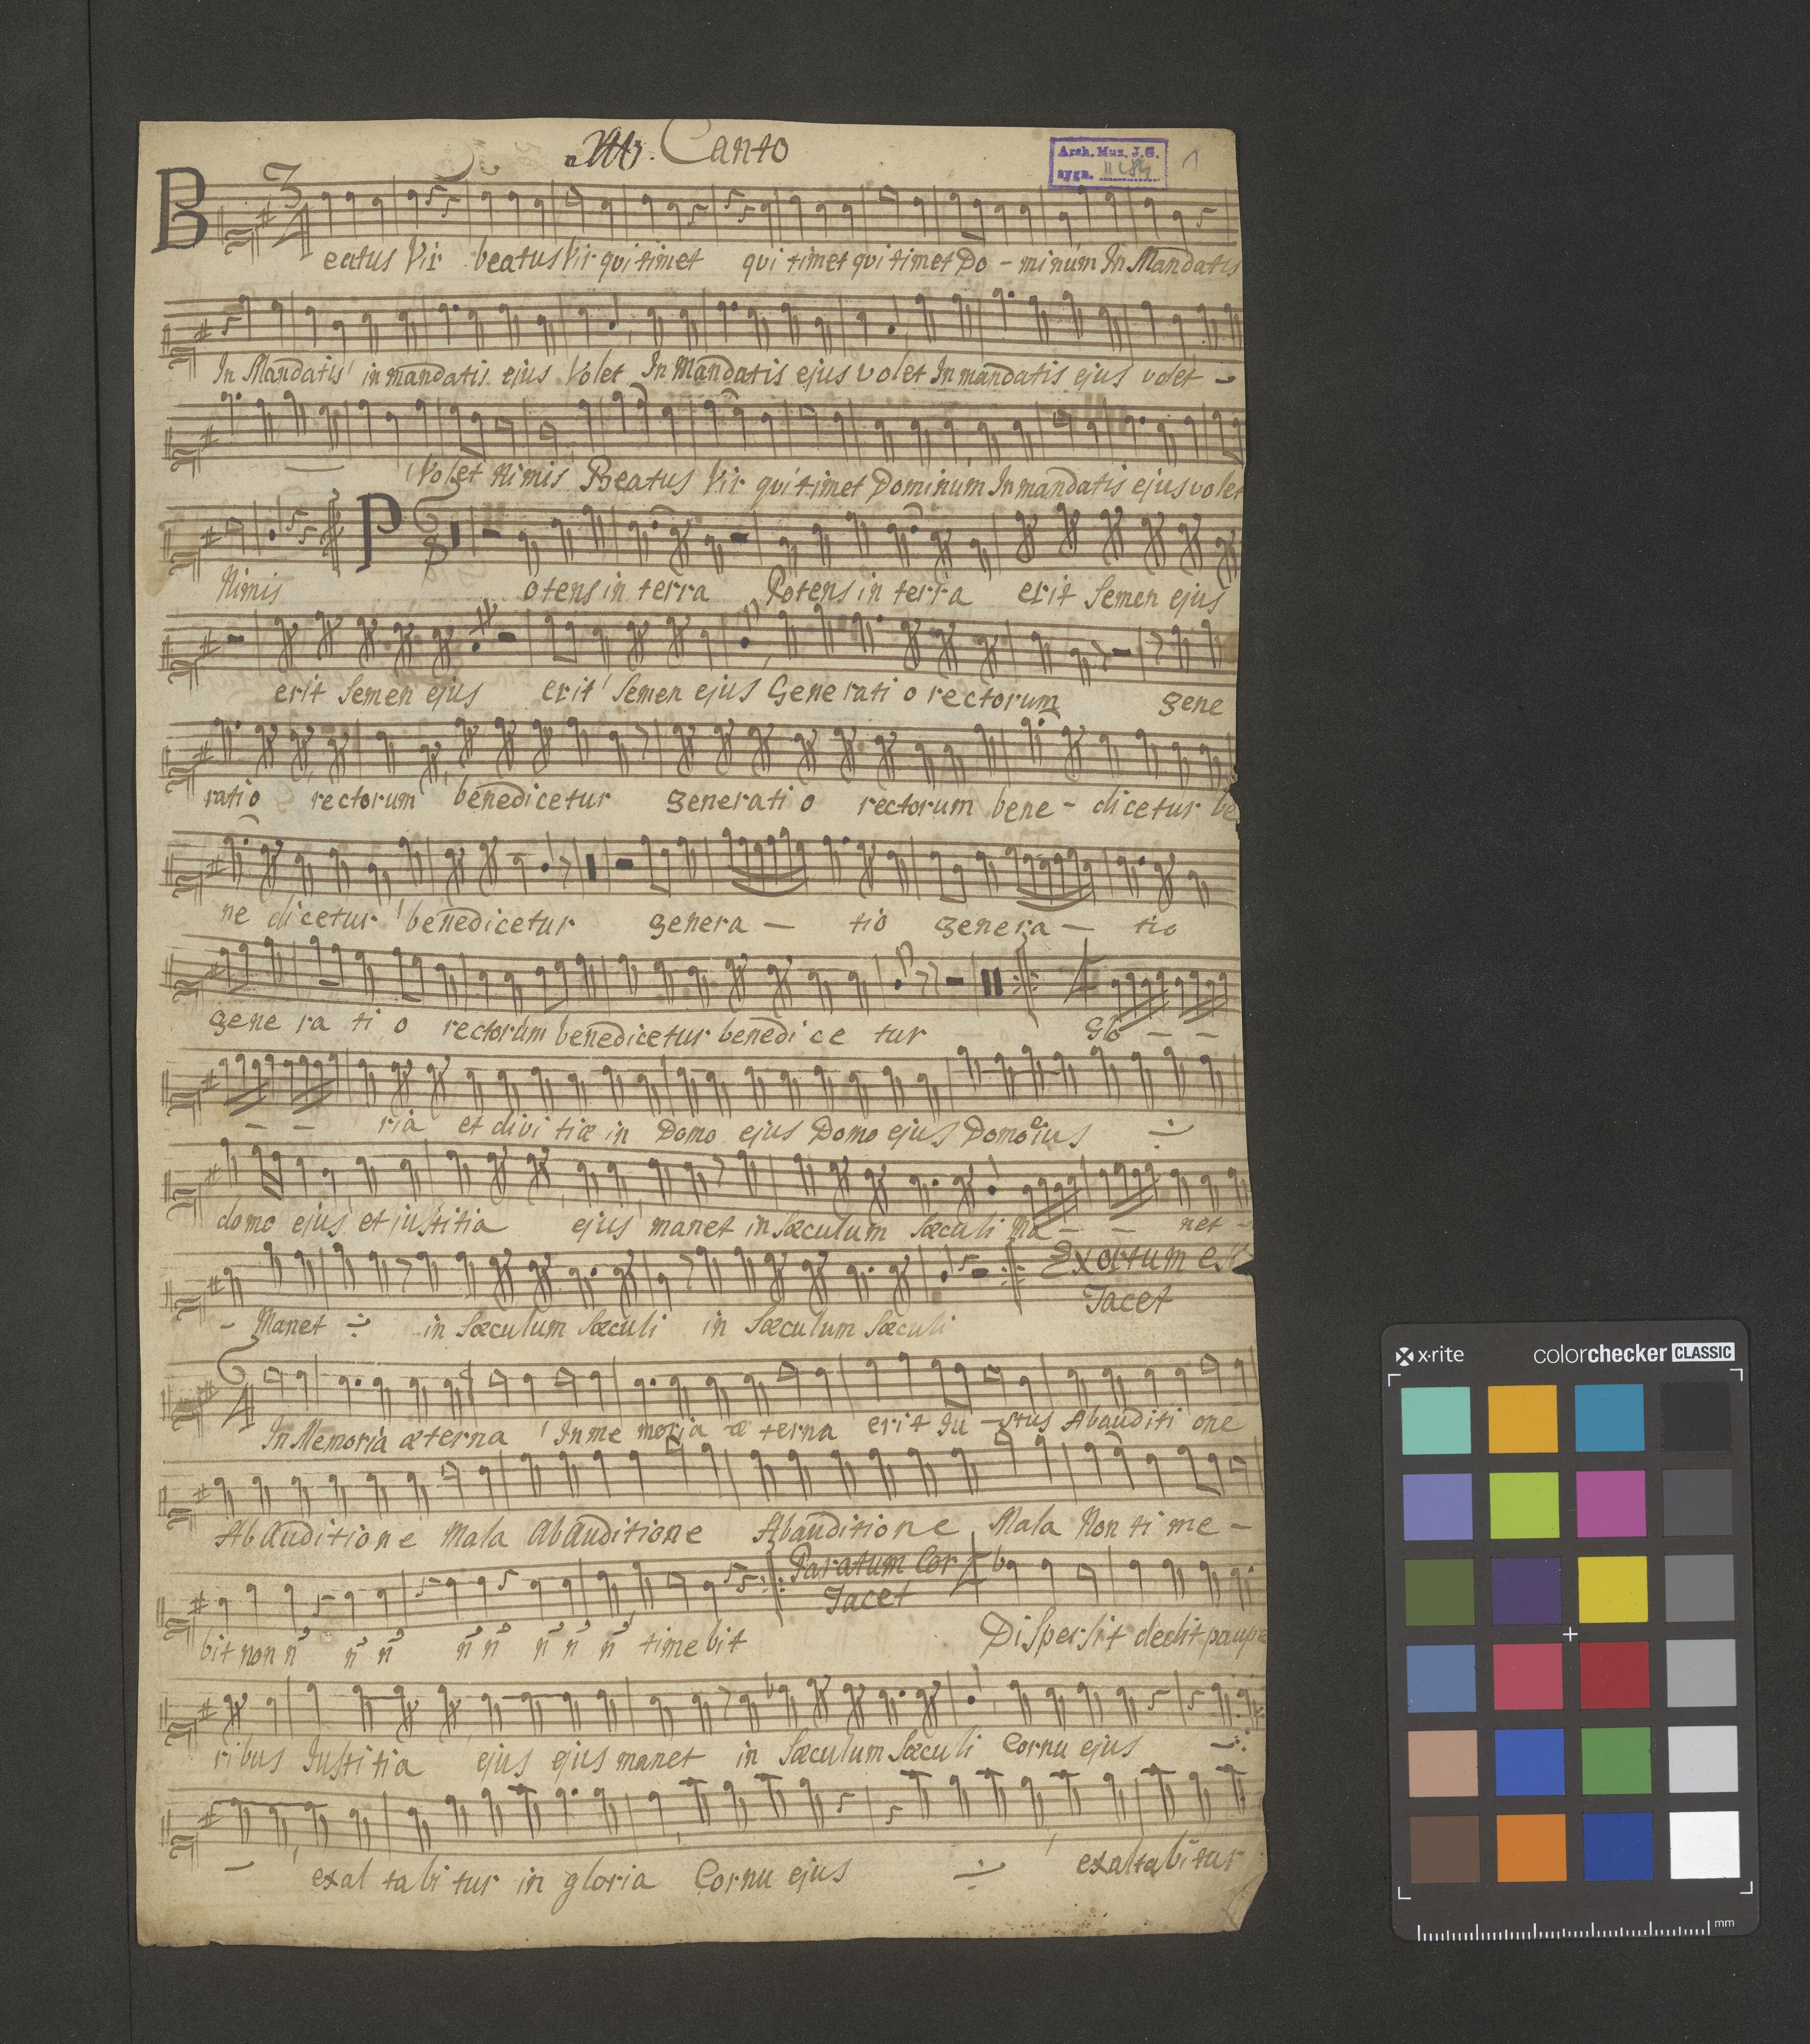 Canto
Arch. Muz. J.G.
sygn.
Beatus Vir beatus Vir qui timet qui timet qui timet Do - minum In Mandatis
In Mandatis in mandatis ejus Volet In Mandatis ejus volet In mandatis ejus volet -
Volet Nimis Beatus Vir qui timet Dominum In mandatis ejus volet
Nimis Potens in terra Potens in terra erit Semen ejus
erit Semen ejus erit Semen ejus Gene rati o rectorum gene
ratio rectorum benedicetur generati o rectorum bene - dicetur be
ne dicetur benedicetur genera - tio genera - tio
gene ra ti o rectorum benedicetur benedi ce tur Glo - -
- - ria et divi tiæ in Domo ejus Domo ejus Domo eius
domo ejus et justitia ejus manet in Sæculum Sæculi Ma - - net -
Exortum est
Tacet
- Manet in Sæculum Sæculi in Sæculum Sæculi
In Memoria æterna In me moria æ terna erit Ju - stus Ab auditi one
Ab Auditione Mala Ab Auditione Ab auditione Mala Non ti me -
Paratum Cor
Tacet
bit non n n n n n n n n timebit Dispersit dedit paupe
ribus Justitia ejus ejus manet in Sæculum Sæculi Cornu ejus
- exal tabi tur in gloria Cornu ejus exaltabitur
x-rite colorchecker CLASSIC
mm